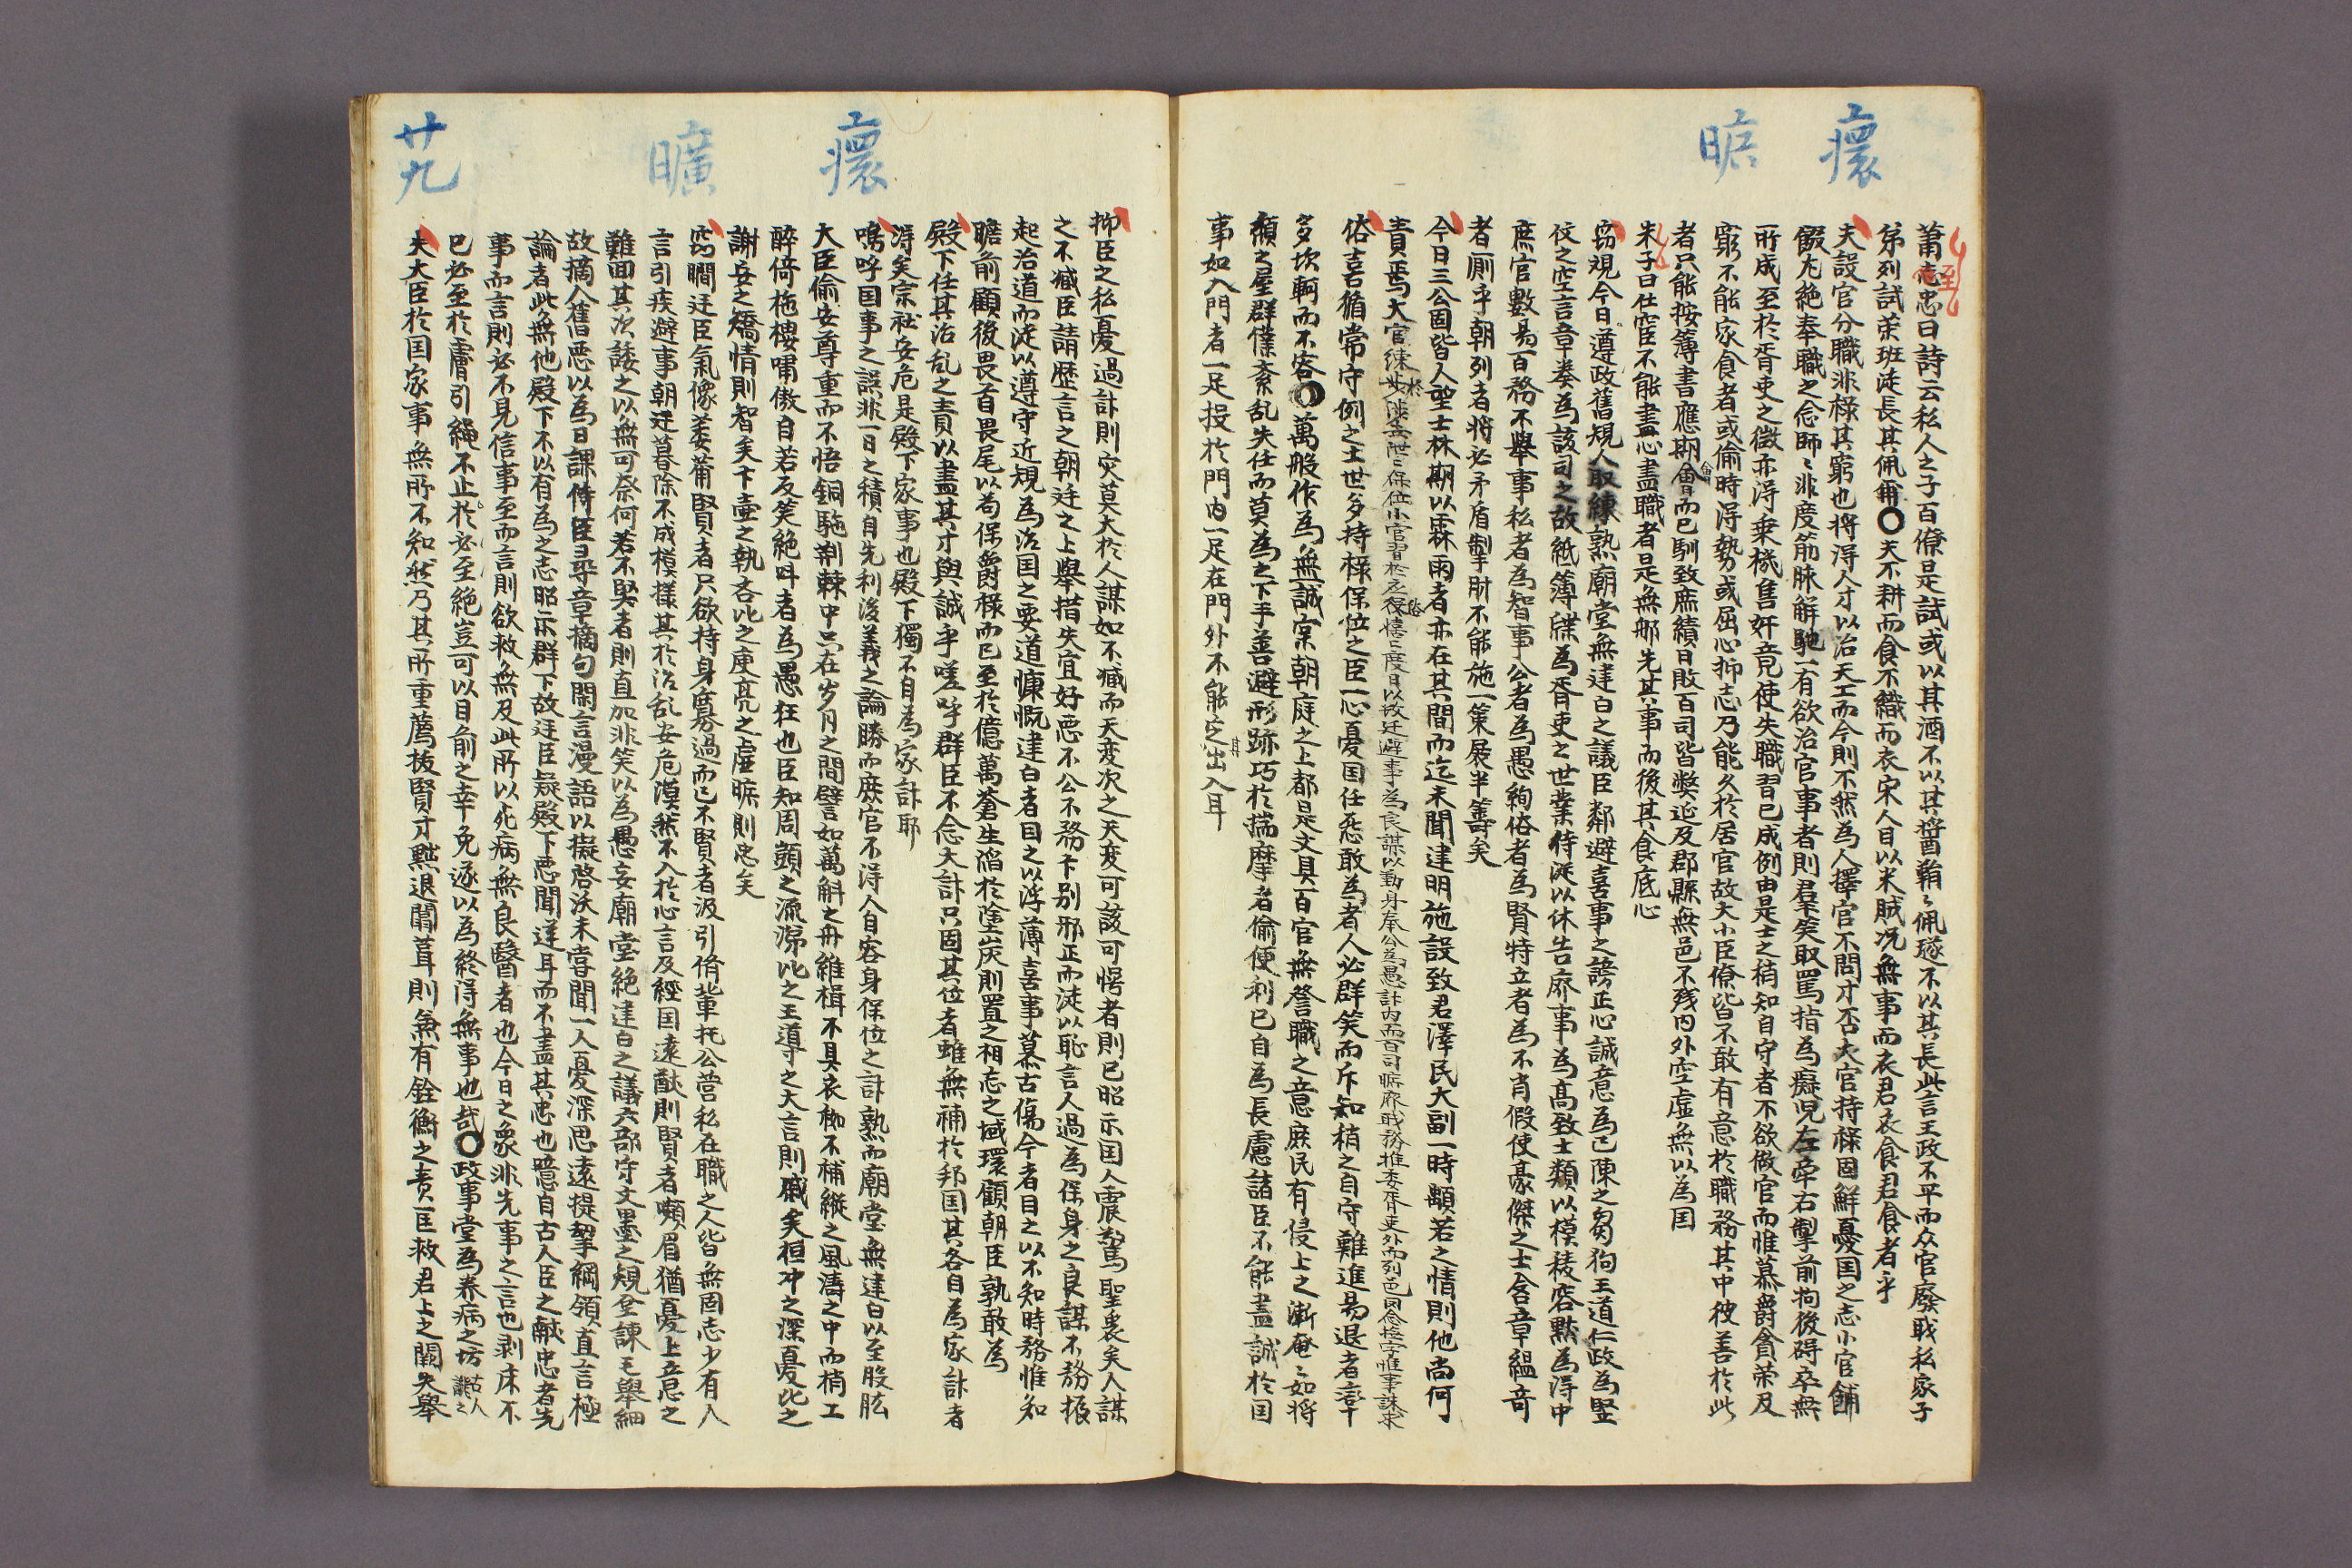 瘝
𣆤
蕭至忠曰詩云私人之子百僚是試或以其酒不以其醬鞙〻佩璲不以其長此言王政不平而众官廢戢私家子
弟列試荣班徒長其佩爾〇夫不耕而食不織而衣宋人目以米賊况無事而衣君衣食君食者乎
夫設官分職非禄其窮也将淂人才以治天工而今則不然為人擇官不問才否大官持禄固鮮憂国之志小官餔
餟尤絶奉職之念師〻非度筋脉解馳一有欲治官事者則群笑取罵指為癡児左牽右掣前拘後碍卒無
所成至於胥吏之微亦淂乗機售奸竟使失職習已成例由是士之稍知自守者不欲做官而惟慕爵貪荣及
窮不能家食者或偷時淂勢或屈心抑志乃能久於居官故大小臣僚皆不敢有意於職務其中彼善於此
者只能按簿書應期會而已馴致庶績日敗百司皆獘延及郡縣無邑不残内外空虚無以為国
朱子曰仕宦不能盡心盡職者是無那先其事而後其食底心
窃覌今日遵政舊規人取練熟廟堂無建白之議臣鄰避喜事之謗正心誠意為已陳之芻狗王道仁政為竪
伎之空言章奏為該司之故紙簿牒為胥吏之世業侍従以休告廢事為高致士類以模稜容黙為淂中
庶官數易百務不舉事私者為智事公者為愚徇俗者為賢特立者為不肖假使豪傑之士含章韞奇
者厠乎朝列者将必矛盾掣肘不能施一策展半籌矣
今日三公固皆人望士林期以霖雨者亦在其間而迄未聞建明施設致君澤民大副一時顒若之情則他尚何
責焉大官練於涉世泄〻保位小官習於㳂俗憒〻度日以故避事為良謀以勤身奉公為愚計内而百司𣆤廢戢務推委胥吏外而列邑惟事誅求
俗喜循常守例之士世多持禄保位之臣一心憂国任怨敢為者人必群笑而斥知稍之自守難進易退者率
多坎軻而不容〇萬般作為無誠案朝庭之上都是文具百官無營職之意庶民有侵上之漸奄〻如将
頽之屋群僕紊乱失任而莫為之下手善避形跡巧於揣摩者偷便利已自為長慮諸臣不能盡誠於国
事如入門者一足投於門内一足在門外不能定其出入耳
瘝
曠
卄九
抑臣之私憂過計則灾莫大於人謀如不臧而天変次之天変可該可愕者則已昭示国人震驚聖衷矣人謀
之不臧臣請歴言之朝廷之上舉措失宜好悪不公不務卞别邪正而徒以恥言人過為保身之良謀不務振
起治道而徒以遵守近規為治国之要道慷慨建白者目之以浮薄喜事慕古傷今者目之以不知時務惟知
瞻前顧後畏首畏尾以苟保爵禄而已至於億萬蒼生溢於塗炭則置之相忘之域環顧朝臣孰敢為
殿下任其治乱之責以盡其才與誠乎嗟呼群臣不念大計只固其位者雖無補於邦国其各自為家計者
淂矣宗社安危是殿下家事也殿下獨不自為家計耶
嗚呼国事之誤非一日之積自先利後義之論勝而庶官不淂人自容身保位之計熟而廟堂無建白以至股肱
大臣偷安尊重而不悟銅駞荆棘中只在岁月之間譬如萬斛之舟維楫不具衣袽不補縱之風濤之中而梢工
醉倚柂樓嘯傲自若反笑絶叫者為愚狂也臣知周顗之流涕比之王導之大言則戚矣桓冲之深憂比之
謝安之矯情則智矣卞壺之執吝比之庾亮之虚𣆤則忠矣
窃瞯廷臣氣像委薾賢者只欲持身寡過而已不賢者汲引儕輩托公营私在職之人皆無固志少有人
言引疾避事朝廷暮除不成模樣其於治乱安危漠然不入於心言及經国遠猷則賢者嚬眉猶憂上意之
難回其次諉之以無可奈何若不賢者則直加非笑以為愚妄廟堂絶建白之議六部守文墨之規𡊮諫毛舉細
故摘人舊悪以為日課侍臣尋章摘句閑言漫語以擬啓沃未甞聞一人憂深思遠提挈綱領直言極
論者此無他殿下不以有為之志昭示群下故廷臣疑殿下悪聞逆耳而不盡其忠也噫自古人臣之献忠者先
事而言則必不見信事至而言則欲救無及此所以死病無良醫者也今日之象非先事之言也剥床不
已必至於膚引䋲不止於必至絶豈可以目前之幸免遂以為終淂無事也哉〇政事堂為養病之坊古人譏之
夫大臣於国家事無所不知然乃其所重薦抜賢才黜退闒茸則兼有銓衡之责匡救君上之闕失舉